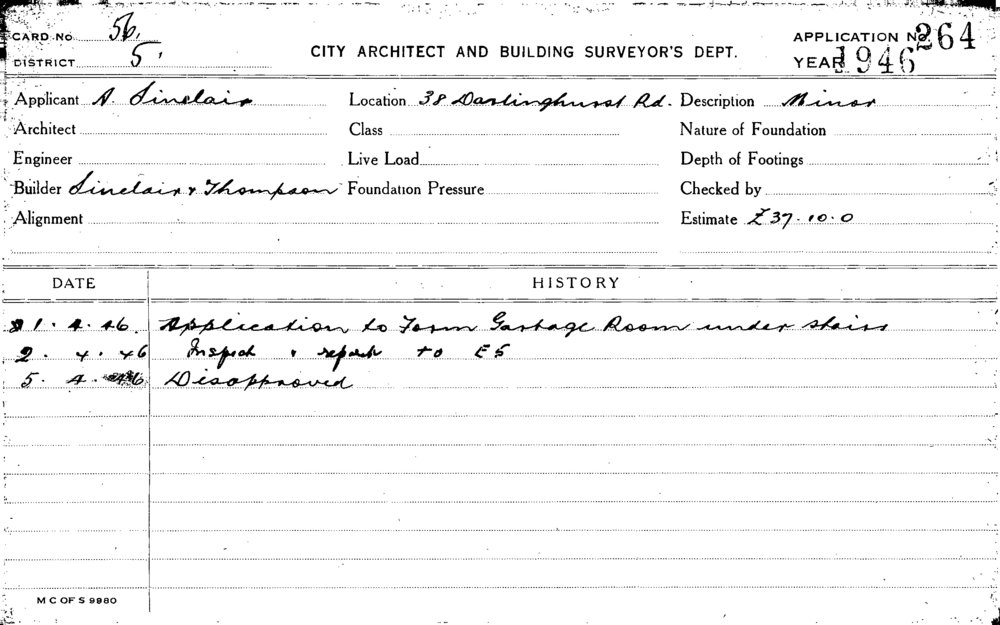 CARD No 56.
DISTRICT 5.
CITY ARCHITECT AND BUILDING SURVEYOR'S DEPT.
APPLICATION No. 264
YEAR 1946
Applicant A. Sinclair Location 38 Darlinghurst Rd. Description Minor
Architect Class Nature of Foundation
Engineer Live Load Depth of Footings
Builder Sinclair & Thompson Foundation Pressure Checked by
Alignment Estimate £37.10.0
DATE HISTORY
1.4.46. Application to Form Garbage Room under stairs
2.4.46 Inspect & report to E5
5.4.46 Disapproved
M C OF S 9980